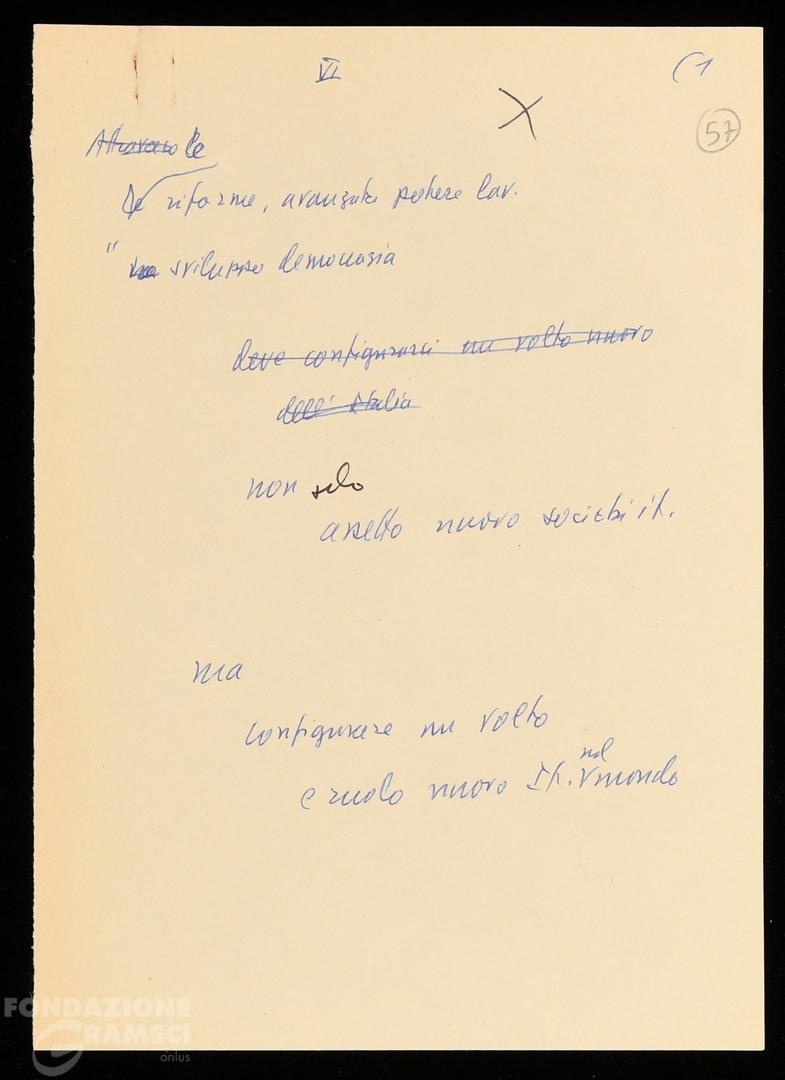 VI
(1
57
Attraverso le
Le riforme, avanzata potere lav.
" sviluppo democrazia
deve configurarsi un volto nuovo
dell'Italia
non solo
assetto nuovo società it.
ma
configurare un volto
e ruolo nuovo It. nel mondo
FONDAZIONE
GRAMSCI
onlus